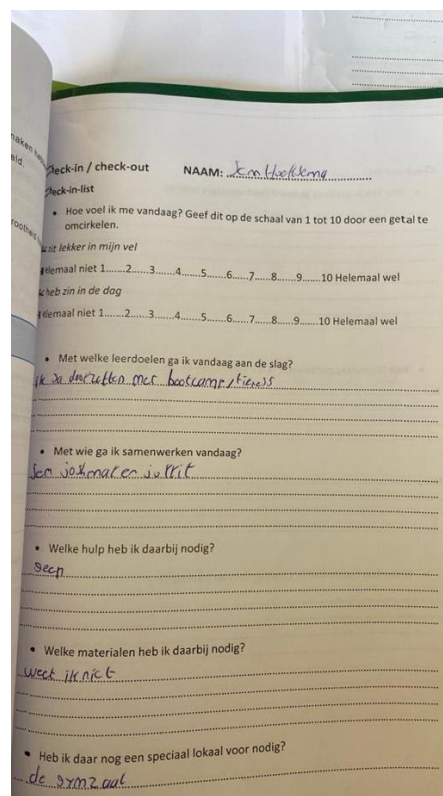 Check-in / check-out NAAM: Jem
Check-in-list
• Hoe voel ik me vandaag? Geef dit op de schaal van 1 tot 10 door een getal te
omcirkelen.
zit lekker in mijn vel
elemaal niet 1.......2......3......4......5......6......7......8......9......10 Helemaal wel
heb zin in de dag
elemaal niet 1.......2......3......4......5......6......7......8......9......10 Helemaal wel
• Met welke leerdoelen ga ik vandaag aan de slag?
ik ga doorzetten met bootcamp/
• Met wie ga ik samenwerken vandaag?
en jorrit
• Welke hulp heb ik daarbij nodig?
geen
• Welke materialen heb ik daarbij nodig?
weet ik niet
• Heb ik daar nog een speciaal lokaal voor nodig?
de gymzaal